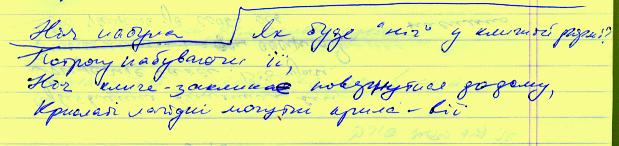 Ніч набула Як буде "ніч" у кличній формі?
Потроху набуваючи її,
Ніч кличе - закликає повернутися додому,
Крилаті лагідні могутні крила - вії